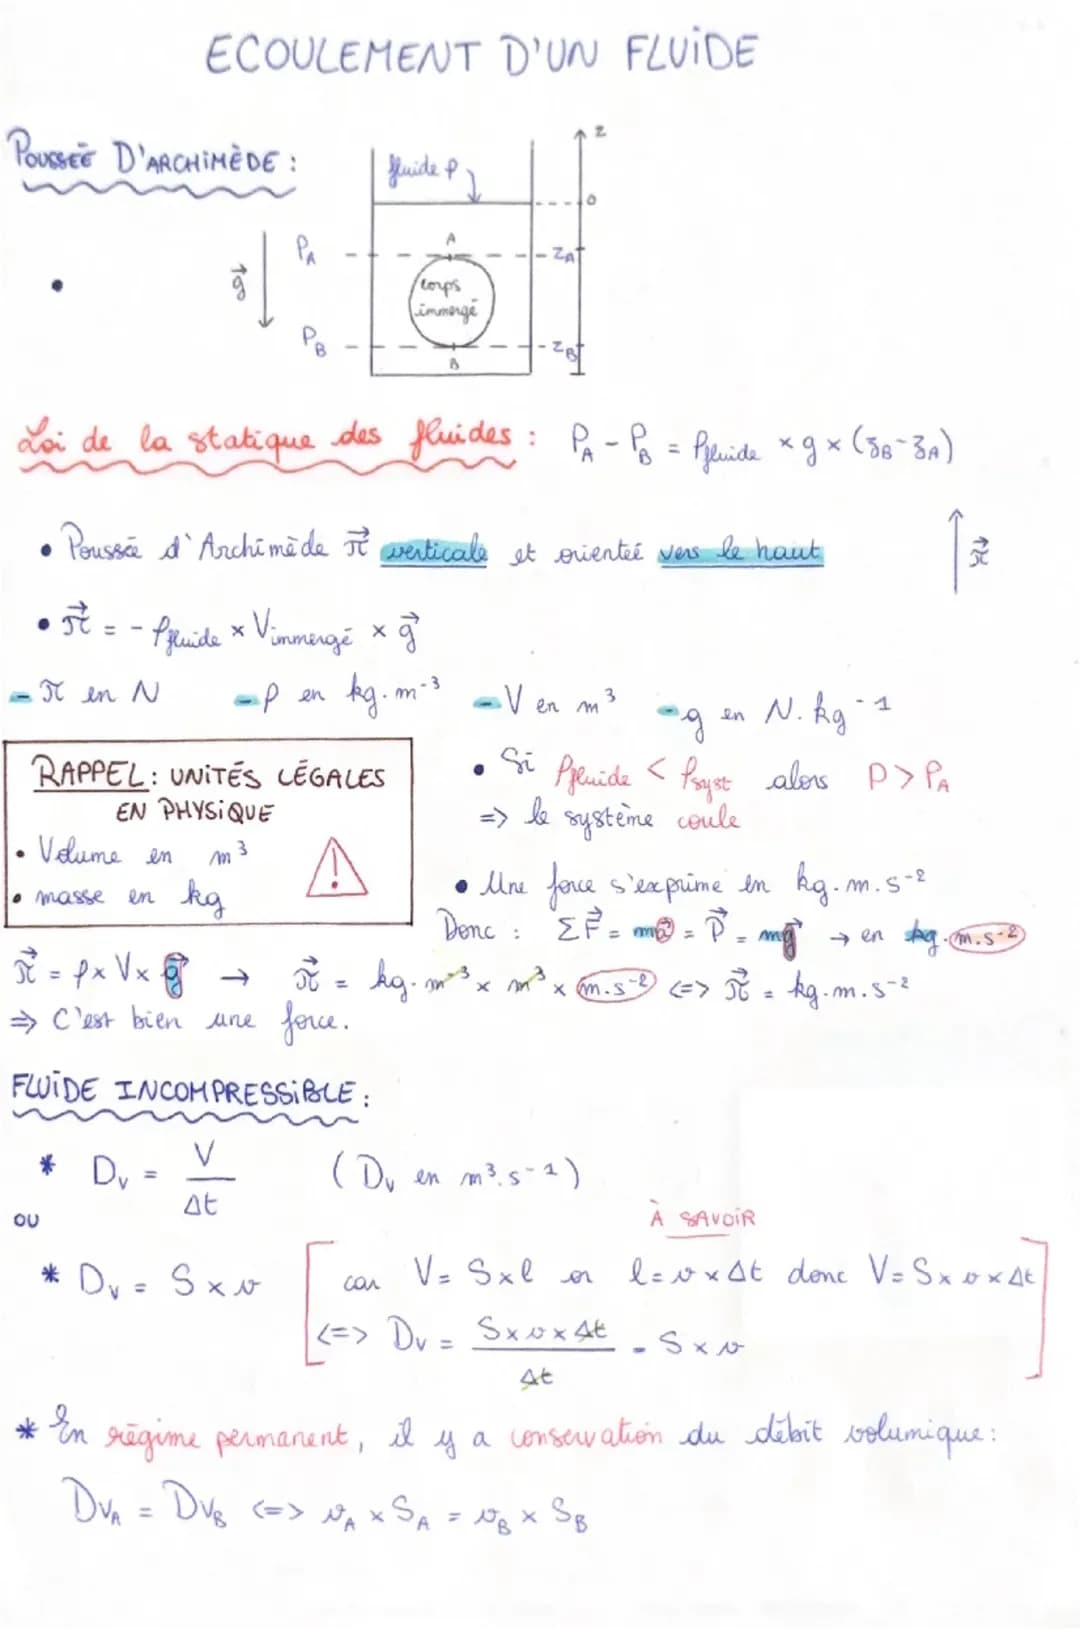 ECOULEMENT D'UN FLUIDE
POUSSÉE D'ARCHIMÈDE :
fluide ρ
z
0
P_A
A
z_A
g⃗
corps
immergé
P_B
B
z_B
Loi de la statique des fluides : P_A - P_B = ρ_fluide × g × (z_B - z_A)
• Poussée d'Archimède π⃗ verticale et orienteé vers le haut
π⃗
• π⃗ = - ρ_fluide × V_immergé × g⃗
- π en N - ρ en kg.m⁻³ - V en m³ - g en N.kg⁻¹
RAPPEL : UNITÉS LÉGALES
EN PHYSIQUE
• Volume en m³
• masse en kg
!
• Si ρ_fluide < ρ_syst alors P > P_A
=> le système coule
• Une force s'exprime en kg.m.s⁻²
Donc : ΣF⃗ = ma⃗ = P⃗ = mg⃗ → en kg.m.s⁻²
π⃗ = ρ × V × g⃗ → π⃗ = kg.m⁻³ × m³ × m.s⁻² <=> π⃗ = kg.m.s⁻²
=> C'est bien une force.
FLUIDE INCOMPRESSIBLE :
* D_v = V / Δt (D_v en m³.s⁻¹)
OU
À SAVOIR
* D_v = S × v [ car V = S × l or l = v × Δt donc V = S × v × Δt
<=> D_v = S × v × Δt / Δt = S × v ]
* En régime permanent, il y a conservation du débit volumique :
D_vA = D_vB <=> v_A × S_A = v_B × S_B